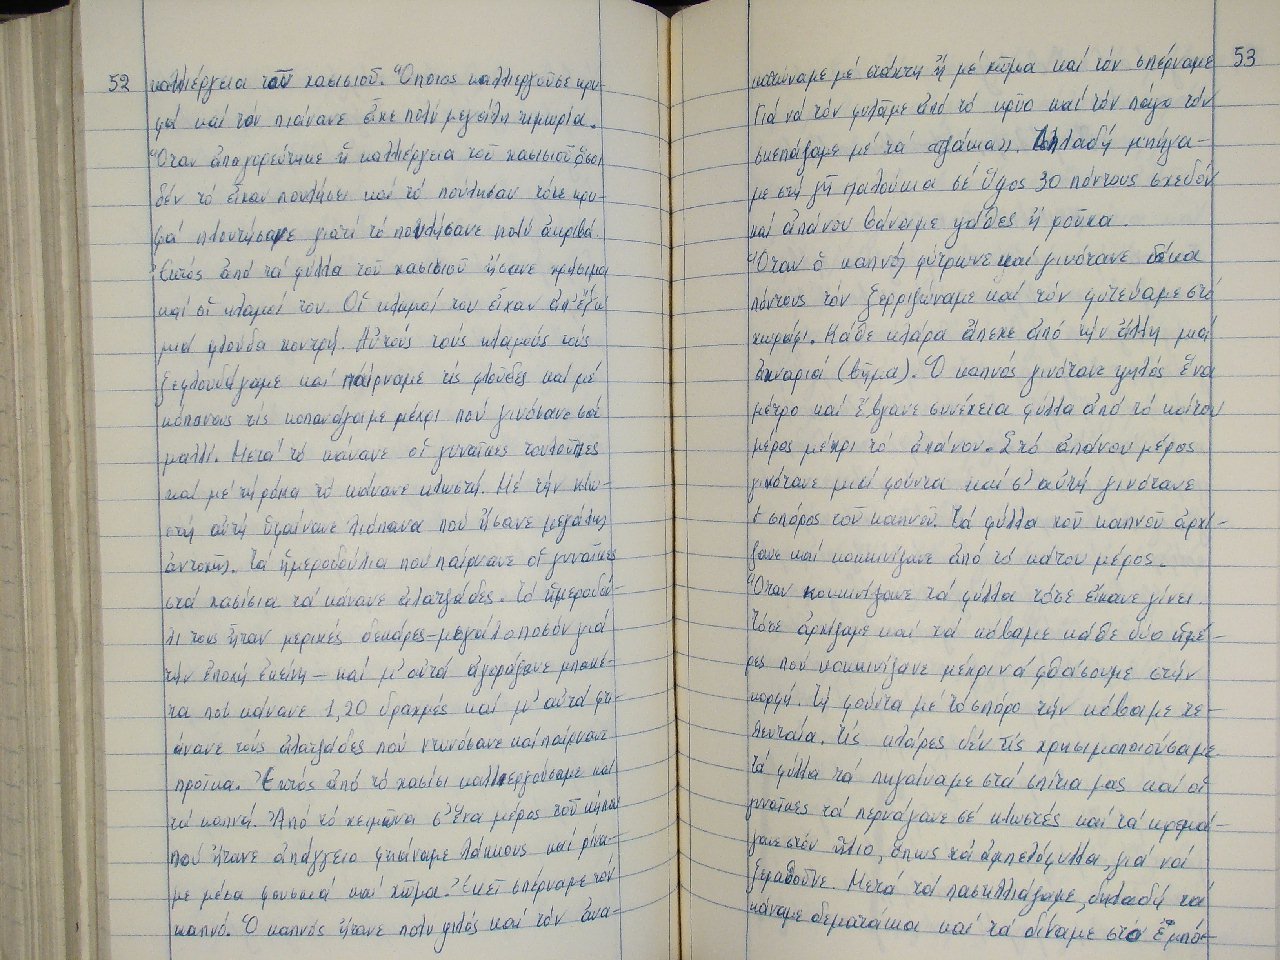 52
καλλιέργεια τοῦ χασισιοῦ. Ὅποιος καλλιεργοῦσε κρυ-
φά καί τόν πιάνανε εἶχε πολύ μεγάλη τιμωρία.
Ὅταν ἀπαγορεύτηκε ἡ καλλιέργεια τοῦ χασισιοῦ ὅσοι
δέν τό εἶχαν πουλήσει καί τό πούλησαν τότε κρυ-
φά πλουτήσανε γιατί τό πουλήσανε πολύ ἀκριβά.
Ἐκτός ἀπό τά φύλλα τοῦ χασισιοῦ ἤσανε χρήσιμα
καί οἱ κλαμοί του. Οἱ κλαμοί του εἶχαν ἀπ' ἔξω
μιά φλούδα χοντρή. Αὐτούς τούς κλαμούς τούς
ξεφλουδάγαμε καί παίρναμε τίς φλοῦδες καί μέ
κόπανους τίς κοπανάγαμε μέχρι πού γινόσανε σά
μαλλί. Μετά τό κάνανε οἱ γυναῖκες τουλοῦπες
καί μέ τή ρόκα τό κάνανε κλωστή. Μέ τήν κλω-
στή αὐτή ὑφαίνανε λιόπανα πού ἤσανε μεγάλης
ἀντοχῆς. Τά ἡμεροδούλια πού παίρνανε οἱ γυναῖκες
στά χασίσια τά κάνανε ἀλατζάδες. Τό ἡμεροδού-
λι τους ἦταν μερικές δεκάρες - μεγάλο ποσόν γιά
τήν ἐποχή ἐκείνη - καί μ' αὐτά ἀγοράζανε μπακέ-
τα πού κάνανε 1,20 δραχμές καί μ' αὐτά φτι-
άνανε τούς ἀλατζάδες πού ντυνόσανε καί παίρναν
προίκα. Ἐκτός ἀπό τό χασίσι καλλιεργούσαμε καί
τά καπνά. Ἀπό τό χειμῶνα σ' ἕνα μέρος τοῦ κήπου
πού ἤτανε ἀπάγγειο φτιάναμε λάκκους καί ρίχα-
με μέσα φουσκιά καί χῶμα. Ἐκεῖ σπέρναμε τόν
καπνό. Ὁ καπνός ἤτανε πολύ ψιλός καί τόν ἀνα-
53
κατώναμε μέ στάχτη ἤ μέ χῶμα καί τόν σπέρναμε
Γιά νά τόν φυλάμε ἀπό τό κρῦο καί τόν πάγο τόν
σκεπάζαμε μέ τά Δηλαδή μπήγα-
με στή γῆ παλούκια σέ ὕψος 30 πόντους σχεδόν
καί ἀπάνου βάναμε ἤ ροῦχα.
Ὅταν ὁ καπνός φύτρωνε καί γινότανε δέκα
πόντους τόν ξερριζώναμε καί τόν φυτεύαμε στό
χωράφι. Κάθε κλάρα ἄπεχε ἀπό τήν ἄλλη μιά
ἀχναριά (βῆμα). Ὁ καπνός γινότανε ψηλός ἕνα
μέτρο καί ἔβγανε συνέχεια φύλλα ἀπό τό κάτου
μέρος μέχρι τό ἀπάνου. Στό ἀπάνου μέρος
γινότανε μιά φούντα καί σ' αὐτή γινότανε
ὁ σπόρος τοῦ καπνοῦ. Τά φύλλα τοῦ καπνοῦ ἀρχί-
ζανε καί κοκκινίζανε ἀπό τό κάτου μέρος.
Ὅταν κοκκινίζανε τά φύλλα τότε εἴχανε γίνει.
Τότε ἀρχίζαμε καί τά κόβαμε κάθε δύο ἡμέ-
ρες πού κοκκινίζανε μέχρι νά φθάσουμε στήν
κορφή. Τή φούντα μέ τό σπόρο τήν κόβαμε τε-
λευταία. Τίς κλάρες δέν τίς χρησιμοποιούσαμε.
Τά φύλλα τά πηγαίναμε στά σπίτια μας καί οἱ
γυναῖκες τά περνάγανε σέ κλωστές καί τά κρεμά-
γανε στόν ἥλιο, ὅπως τά ἀμπελόφυλλα, γιά νά
ξεραθοῦνε. Μετά τά παστελλιάζαμε, δηλαδή τά
κάναμε δεματάκια καί τά δίναμε στό ἐμπό-